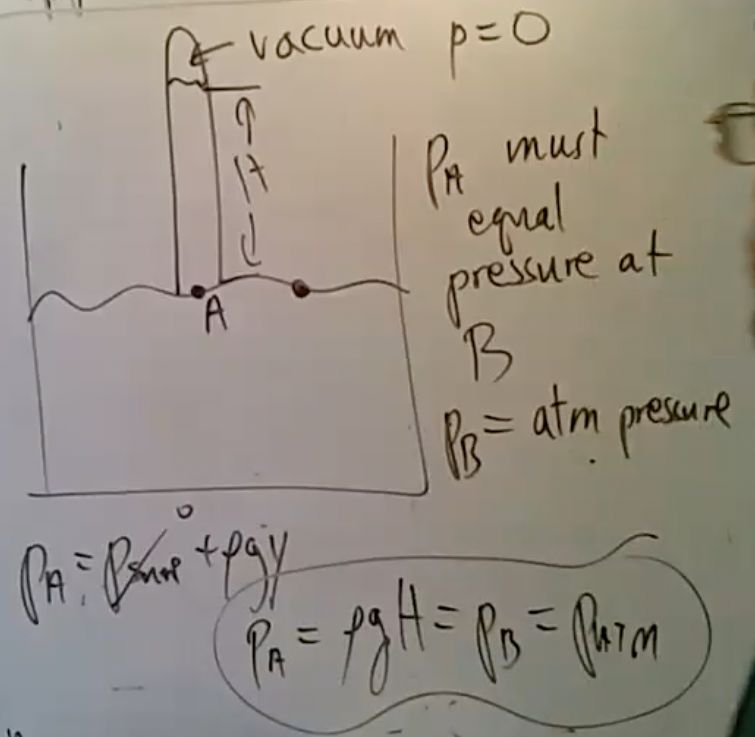 vacuum p=0
H
A
PA must
equal
pressure at
B
PB = atm pressure
0
PA = Psurf + ρgy
PA = ρgH = PB = PATM